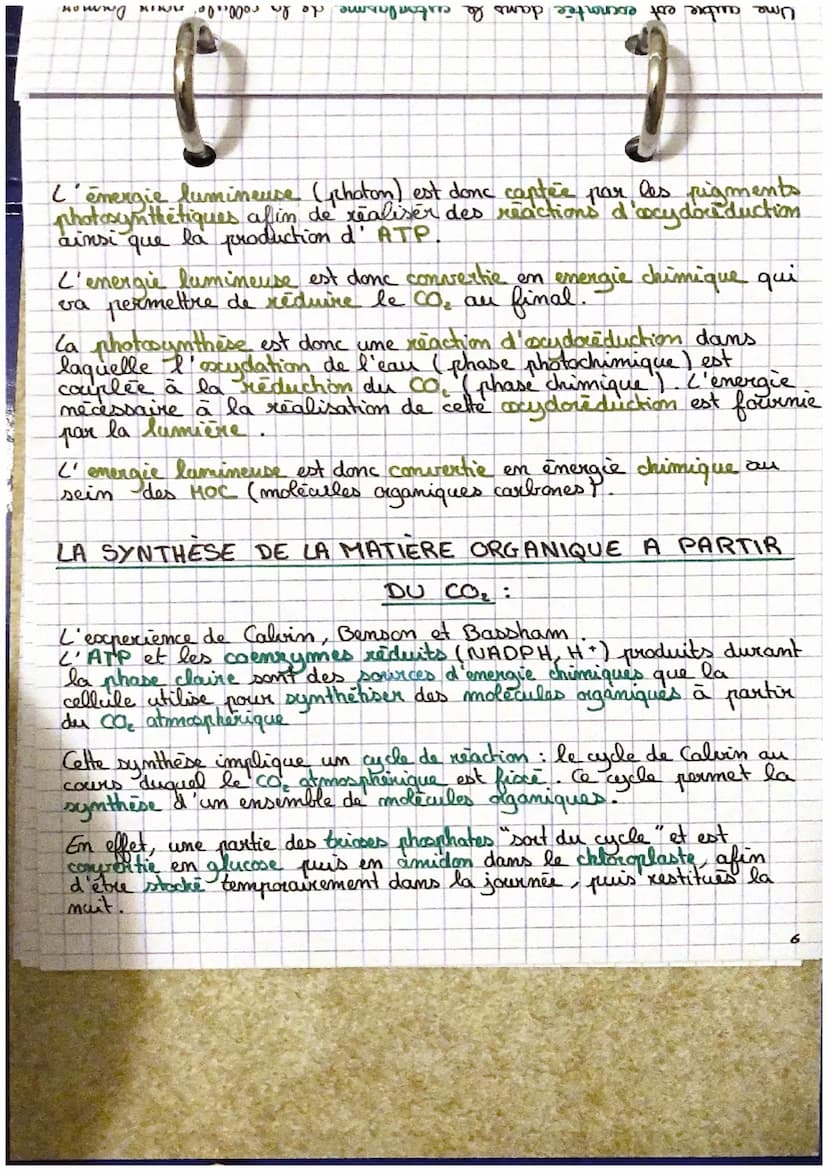 Une autre est exportée dans le cytoplasme de la cellule, pour former
L'énergie lumineuse (photon) est donc captée par les pigments
photosynthétiques afin de réaliser des réactions d'oxydoréduction
ainsi que la production d'ATP.
L'energie lumineuse est donc convertie en energie chimique qui
va permettre de réduire le CO₂ au final.
La photosynthèse est donc une réaction d'oxydoréduction dans
laquelle l'oxydation de l'eau (phase photochimique) est
couplée à la réduction du CO₂ (phase chimique). L'énergie
nécessaire à la réalisation de cette oxydoréduction est fournie
par la lumière.
L'energie lumineuse est donc convertie en énergie chimique au
sein des MOC (molécules organiques carbones).
LA SYNTHÈSE DE LA MATIÈRE ORGANIQUE A PARTIR
DU CO₂ :
L'experience de Calvin, Benson et Bassham.
L'ATP et les coenzymes réduits (NADPH, H+) produits durant
la phase claire sont des sources d'energie chimiques que la
cellule utilise pour synthétiser des molécules organiques à partir
du CO₂ atmosphérique
Cette synthèse implique un cycle de réaction : le cycle de Calvin au
cours duquel le CO₂ atmosphérique est fixé. Ce cycle permet la
synthèse d'un ensemble de molécules organiques.
En effet, une partie des trioses phosphates "sort du cycle" et est
convertie en glucose puis en amidon dans le chloroplaste, afin
d'être stocké temporairement dans la journée, puis restitués la
nuit.
6